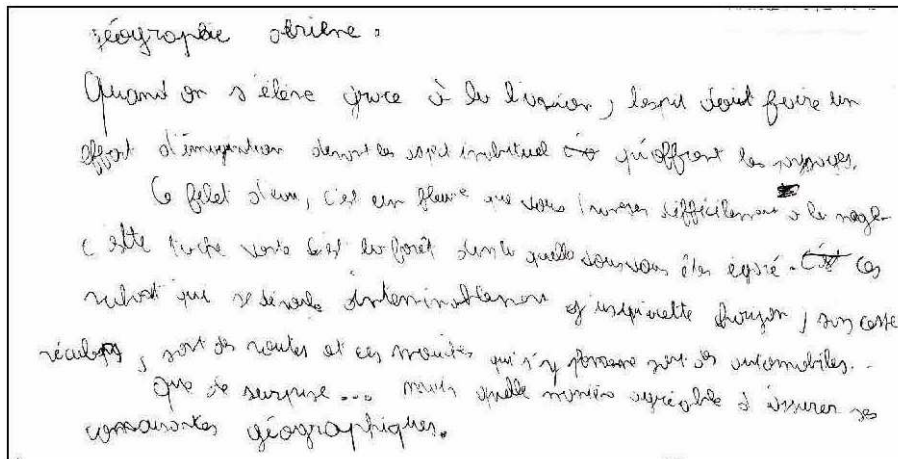 géographie aériene.
Quand on s'élève grace à la l'avion, lesprit doit faire un
effort d'imagination devant les aspet inabituel quoffrent les paysages.
Ce filet d'eau, c'est un fleuve que vous traversez difficilement à la nage
cette tache verte c'est la forêt dans la quelle vous vous êtes égaré. Ces
ruban qui se déroule interminablement jusqu'a cette horizon, sans cesse
réculant, sont des routes et ces qui s'y promene sont des automobiles.
Que de surprise... mais quelle manière agréable d' ses
géographiques.